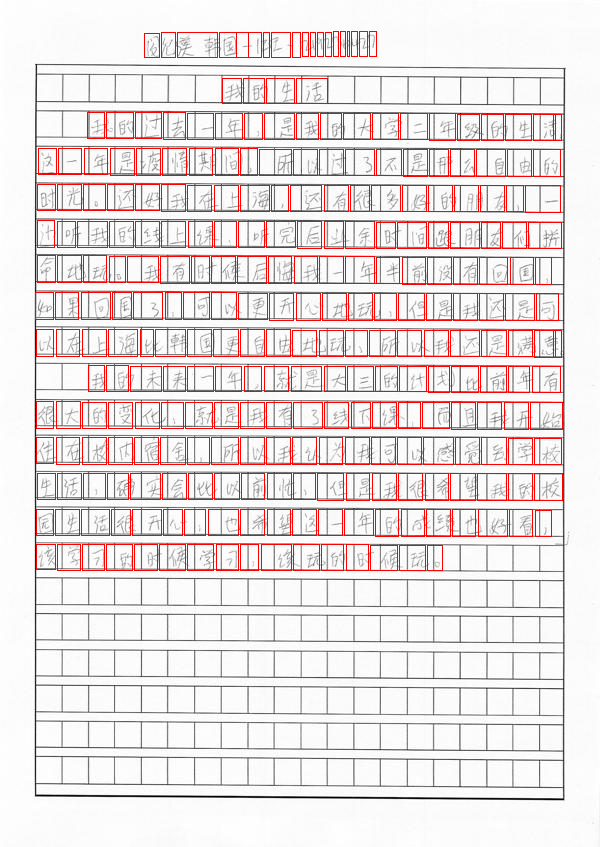 韩国
我的生活
我的过去一年，是我的大学二年级的生活，
这一年是疫情期间，所以过了不是那么自由的
时光。还好我在上海，还有很多好的朋友，一
边听我的线上课，听完后业余时间跟朋友们拼
命地玩。我有时候后悔我一年半前没有回国，
如果回国了，可以更开心地玩，但是我还是可
以在上海比韩国更自由地玩，所以我还是满意。
我的未来一年，就是大三的计划比前年有
很大的变化，就是我有了线下课，而且我开始
住在校内宿舍，所以我认为我可以感觉到学校
生活，确实会比以前忙，但是我很希望我的校
园生活很开心，也希望这一年的成绩也好看，
该学习的时候学习，该玩的时候玩。